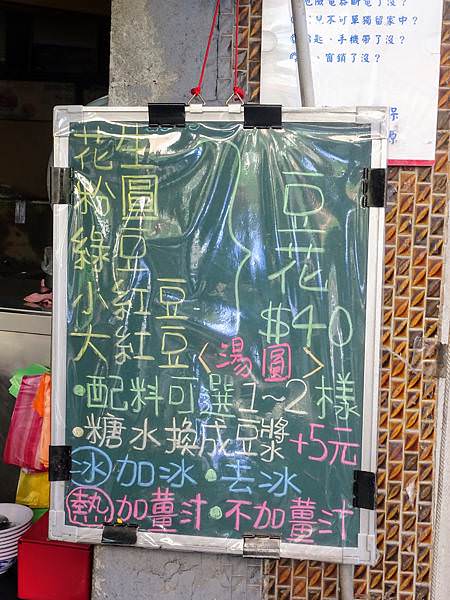 危險電器斷電了沒?
兒不可單獨留家中?
匙、手機帶了沒?
、窗鎖了沒?
花生
粉圓
綠豆
小紅豆
大紅豆
豆花
$40
<湯圓>
·配料可選1~2樣
·糖水換成豆漿+5元
冰 加冰·去冰
熱 加薑汁·不加薑汁